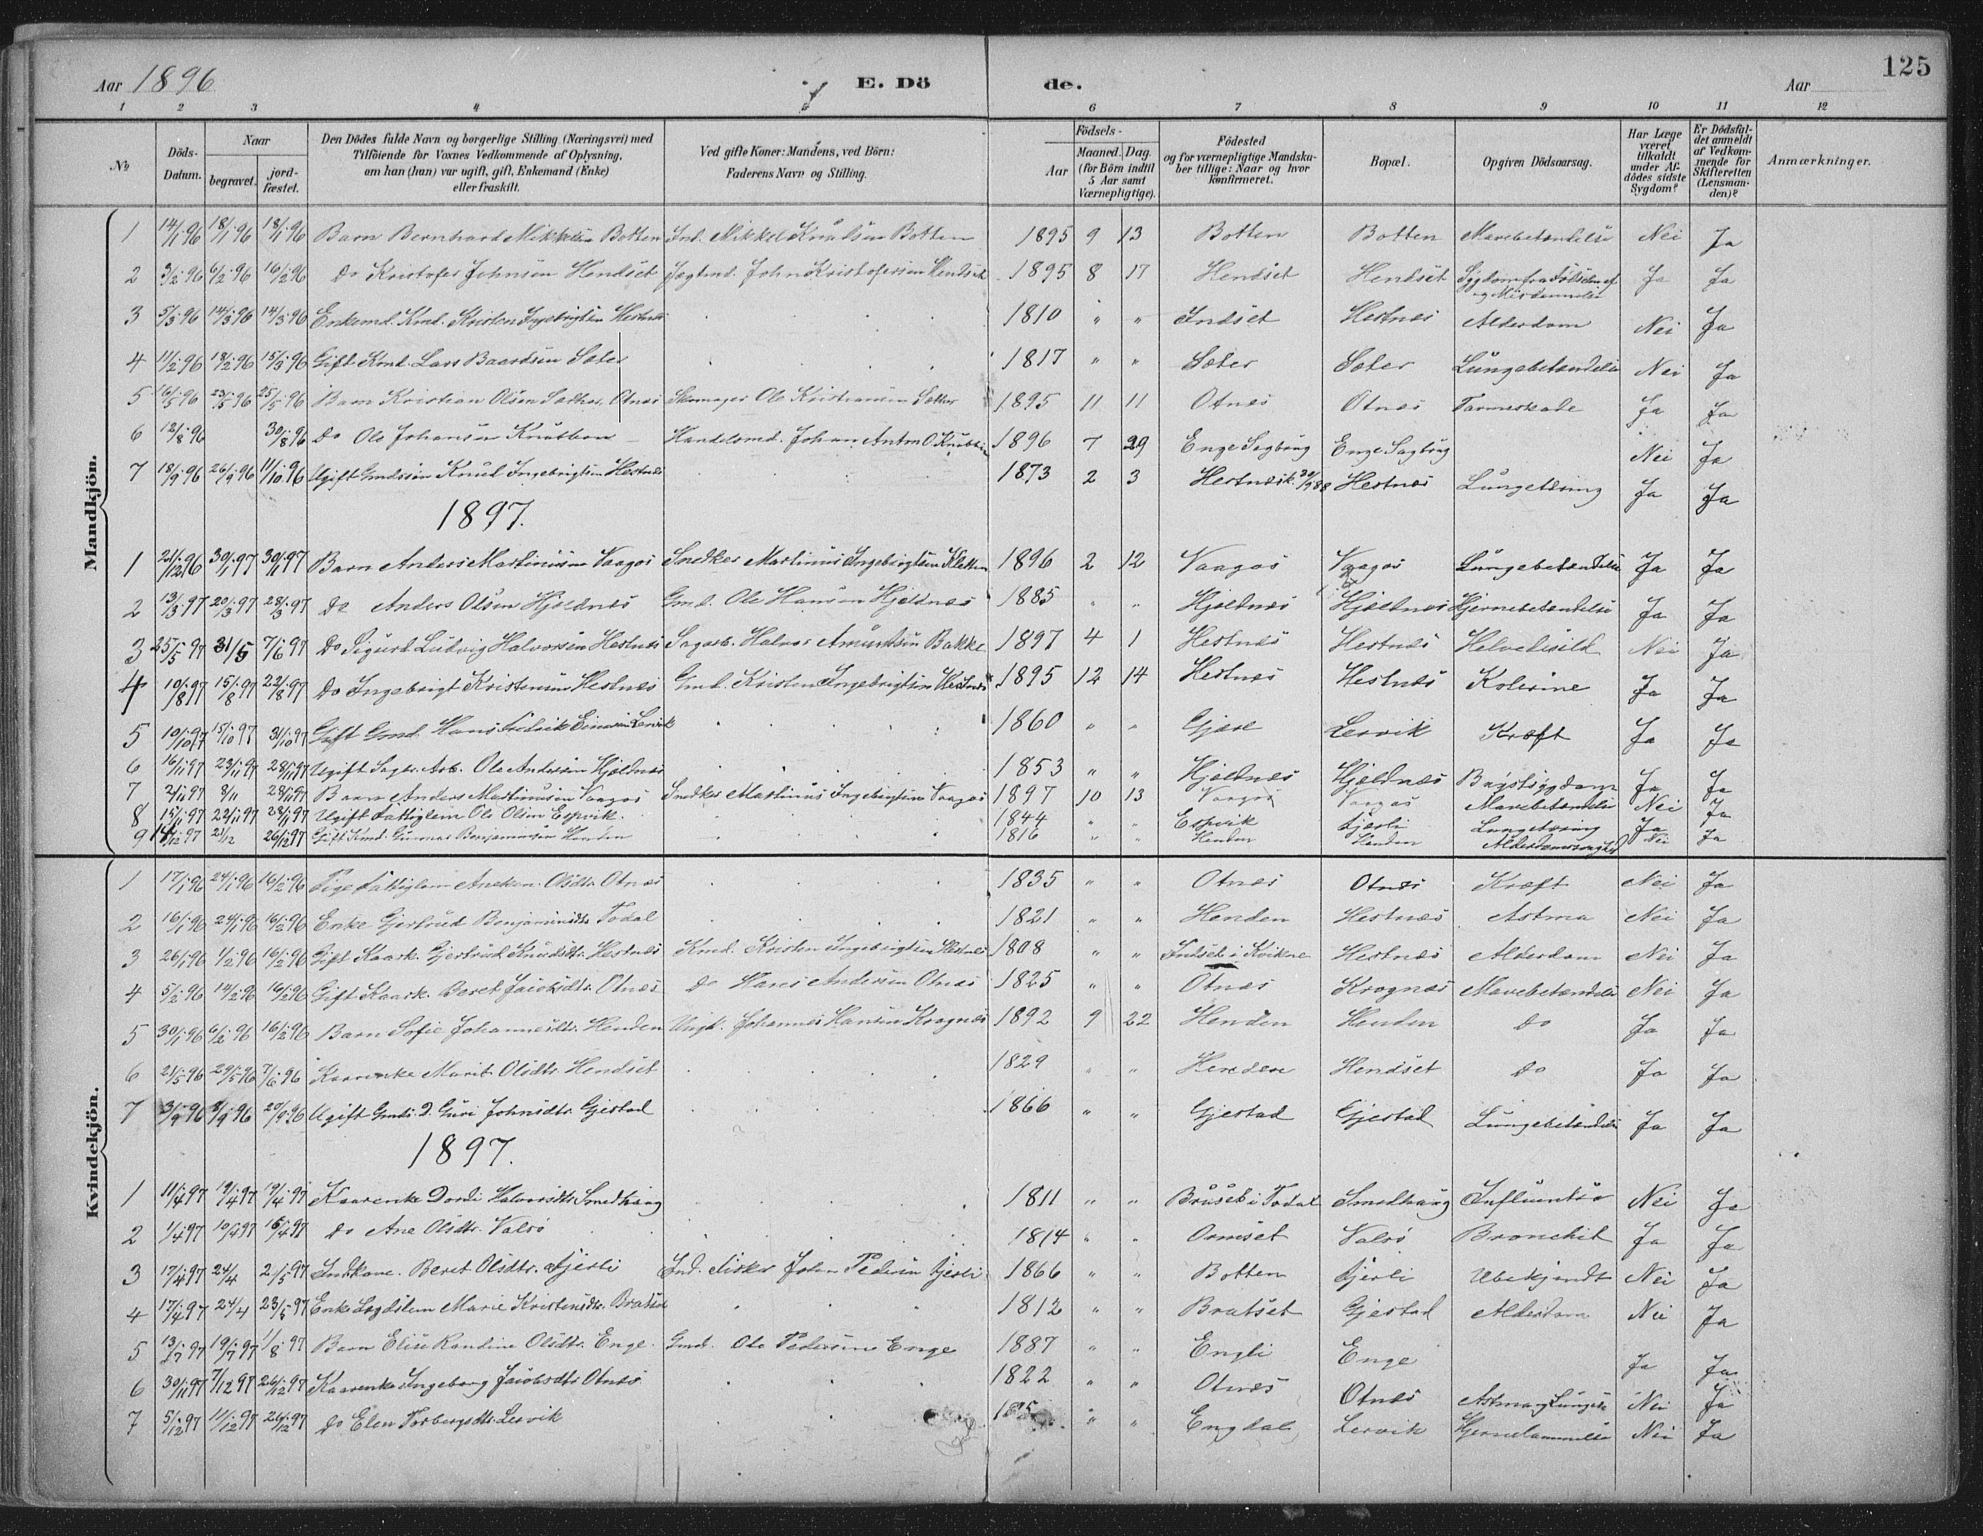 125
Aar 1896 E. Döde. Aar
1 2 3 4 5 6 7 8 9 10 11 12
No Döds-Datum. Naar begravet. jord-fæstet. Den Dödes fulde Navn og borgerlige Stilling (Næringsvei) med Tilföiende for Voxnes Vedkommende af Oplysning, om han (hun) var ugift, gift, Enkemand (Enke) eller fraskilt. Ved gifte Koner: Mandens, ved Börn: Faderens Navn og Stilling. Födsels- Aar Maaned. Dag. (for Börn indtil 5 Aar samt Værnepligtige). Födested og for værnepligtige Mandskaber tillige: Naar og hvor konfirmeret. Bopæl. Opgiven Dödsaarsag. Har Læge været tilkaldt under Afdödes sidste Sygdom? Er Dödsfaldet anmeldt af Vedkommende for Skifteretten (Lensmanden)? Anmærkninger.
Mandkjön.
1 14/1 96 18/1 96 18/1 96 Barn Bernhard Mikkelsen Botten Ind. Mikkel Knudsen Botten 1895 9 13 Botten Botten Mavebetændelse Nei Ja
2 3/2 96 6/2 96 16/2 96 Do Kristofer Johnsen Hendset John Kristofersen Hendset 1895 8 17 Hendset Hendset Sygdom fra Fødselen af og Misdannelse Ja Ja
3 5/3 96 14/3 96 14/3 96 Enkemd. Kmd. Kristen Ingebrigtsen Hestnes 1810 " " Indset Hestnes Alderdom Nei Ja
4 11/2 96 18/2 96 15/3 96 Gift Kmd. Lars Baardsen Sæter 1817 " " Sæter Sæter Lungebetændelse Nei Ja
5 16/5 96 23/5 96 25/5 96 Barn Kristian Olsen Sæther Otnes Skomager Ole Kristiansen Sæther 1895 11 11 Otnes Otnes Tarmeskade Ja Ja
6 12/8 96 30/8 96 Do Ole Johansen Handelsmd. Johan Anton O. 1896 7 29 Enge Sagbrug Enge Sagbrug Nei Ja
7 18/9 96 26/9 96 11/10 96 Ugift Gmdssøn Knud Ingebrigtsen Hestnes 1873 2 3 Hestnæs k. 30/9 88 Hestnæs Lungetæring Ja Ja
1897.
1 21/12 96 30/1 97 30/1 97 Barn Anders Martinusen Vaagos Snedker Martinus Ingebrigtsen Kletten 1896 2 12 Vaagos Vaagos Lungebetændelse Ja Ja
2 13/3 97 20/3 97 28/3 97 Do Anders Olsen Hjeldnes Gmd. Ole Hansen Hjeldnes 1885 " " Hjeldnes Hjeldnes Hjernebetændelse Ja Ja
3 25/5 97 31/5 7/6 97 Do Sigurd Ludvig Halvorsen Hestnes Sagarb. Halvor Amundsen Bakke 1897 4 1 Hestnæs Hestnæs Helvedesild Nei Ja
4 10/8 97 15/8 97 22/8 97 Do Ingebrigt Kristensen Hestnes Gmd. Kristen Ingebrigtsen Hestnes 1895 12 14 Hestnæs Hestnæs Kolerine Ja Ja
5 10/10 97 15/10 97 31/10 97 Gift Gmd. Hans Fredrik Einarsen Lervik 1860 " " Gjøre Lervik Kræft Ja Ja
6 16/11 97 23/11 97 28/11 97 Ugift Sager. Arb. Ole Andersen Hjeldnæs 1853 " " Hjeldnæs Hjeldnæs Brystsygdom Ja Ja
7 2/11 97 8/11 28/11 97 Barn Anders Martinusen Vaagos Snedker Martinus Ingebrigtsen Vaagos 1897 10 13 Vaagos Vaagos Mavebetændelse Nei Ja
8 15/11 97 22/11 97 28/11 97 Ugift Fattiglem Ole Olsen Espvik. 1844 " " Espvik Fjerli Lungetæring Ja Ja
9 14/12 97 21/12 26/12 97 Gift Kmd. Gunnar Benjaminsen Henden 1816 " " Henden Henden Alderdomssvaghed Nei Ja
Kvindekjön.
1 17/1 96 24/1 96 16/2 96 Pige Fattiglem Aneken Olsdtr. Otnæs 1835 " " Otnæs Otnæs Kræft Nei Ja
2 16/1 96 24/1 96 16/2 96 Enke Gjertrud Benjaminsdtr. Todal 1821 " " Henden Hestnæs Astma Nei Ja
3 26/1 96 1/2 96 16/2 96 Gift Kaark. Gjertrud Knudsdtr. Hestnæs Kmd. Kristen Ingebrigtsen Hestnes 1808 " " Indset i Kvikne Hestnæs Alderdom Nei Ja
4 5/2 96 14/2 96 16/2 96 Gift Kaark. Beret Jacobsdtr. Otnes Do Hans Andersen Otnæs 1825 " " Otnæs Krognæs Mavebetændelse Nei Ja
5 30/1 96 6/2 96 16/2 96 Barn Sofie Johannesdtr. Henden Ungk. Johannes Hansen Krognæs 1892 9 22 Henden Henden Do Ja Ja
6 21/5 96 29/5 96 7/6 96 Kaarenke Marit Olsdtr. Hendset 1829 " " Henden Hendset Do Ja Ja
7 3/9 96 9/9 96 20/9 96 Ugift Gmds. D. Guri Johnsdtr. Gjestad 1866 " " Gjestad Gjestad Lungebetændelse Ja Ja
1897.
1 11/4 97 19/4 97 19/4 97 Kaarenke Dordi Halvorsdtr. Smedhaug 1811 " " Bruset i Todal Smedhaug Influentsa Nei Ja
2 1/4 97 10/4 97 16/4 97 Do Ane Olsdtr. Valsø 1814 " " Ormset Valsø Bronchit Ja Ja
3 17/4 97 24/4 2/5 97 Indkone. Beret Olsdtr. Fjerli Ind. Fisker John Pedersen Fjerli 1866 " " Botten Fjerli Ubekjendt Nei Ja
4 17/4 97 24/4 23/5 97 Enke Lægdslem Marie Kristensdtr. Bratset 1812 " " Bratset Gjestad Alderdom Nei Ja
5 13/7 97 19/7 97 1/8 97 Barn Elise Randine Olsdtr. Enge. Gmd. Ole Pedersen Enge 1887 " " Engli Enge Ja Ja
6 30/11 97 7/12 97 26/12 97 Kaarenke Ingeborg Jacobsdtr. Otnes 1822 " " Otnæs Otnæs Astma og Lungebet. Nei Ja
7 5/12 97 11/12 97 26/12 97 Do Elen Torbergsdtr. Lervik " " Engdal Lervik Nei Ja